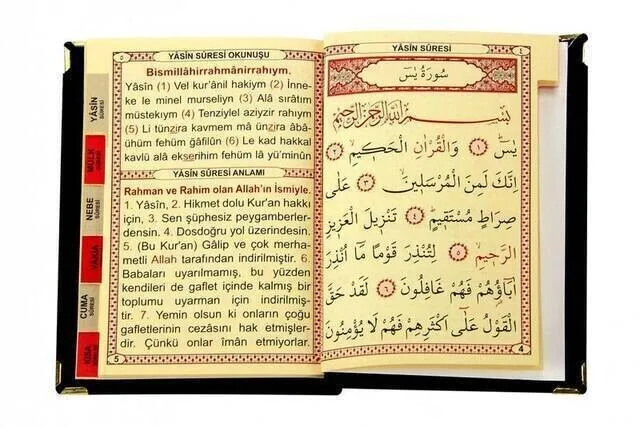 YÂSİN SÛRESİ
٤
سُورَةُ يٰسٓ
بِسْمِ اللّٰهِ الرَّحْمٰنِ الرَّحِيمِ
يٰسٓ ﴿١﴾ وَالْقُرْاٰنِ الْحَكِيمِ ﴿٢﴾
اِنَّكَ لَمِنَ الْمُرْسَلِينَ ﴿٣﴾ عَلٰى
صِرَاطٍ مُسْتَقِيمٍ ﴿٤﴾ تَنْزِيلَ الْعَزِيزِ
الرَّحِيمِ ﴿٥﴾ لِتُنْذِرَ قَوْمًا مَا اُنْذِرَ
اٰبَاؤُهُمْ فَهُمْ غَافِلُونَ ﴿٦﴾ لَقَدْ حَقَّ
الْقَوْلُ عَلٰى اَكْثَرِهِمْ فَهُمْ لَا يُؤْمِنُونَ
4
٥
YÂSİN SÛRESİ OKUNUŞU
Bismillâhirrahmânirrahıym.
Yâsîn (1) Vel kur'ânil hakiym (2) İnne-
ke le minel murseliyn (3) Alâ sırâtım
müstekıym (4) Tenziylel aziyzir rahıym
(5) Li tünzira kavmem mâ ünzira âbâ-
ühüm fehüm gâfilûn (6) Le kad hakkal
kavlü alâ ekserihim fehüm lâ yü'minûn
YÂSİN SÛRESİ ANLAMI
Rahman ve Rahim olan Allah'ın İsmiyle.
1. Yâsîn, 2. Hikmet dolu Kur'an hakkı
için, 3. Sen şüphesiz peygamberler-
densin. 4. Dosdoğru yol üzerindesin.
5. (Bu Kur'an) Gâlip ve çok merha-
metli Allah tarafından indirilmiştir. 6.
Babaları uyarılmamış, bu yüzden
kendileri de gaflet içinde kalmış bir
toplumu uyarman için indirilmiş-
tir. 7. Yemin olsun ki onların çoğu
gafletlerinin cezasını hak etmişler-
dir. Çünkü onlar îmân etmiyorlar.
5
YÂSİN
SÛRESİ
MÜLK
SÛRESİ
NEBE
SÛRESİ
VÂKIA
CUMA
SÛRESİ
KISA